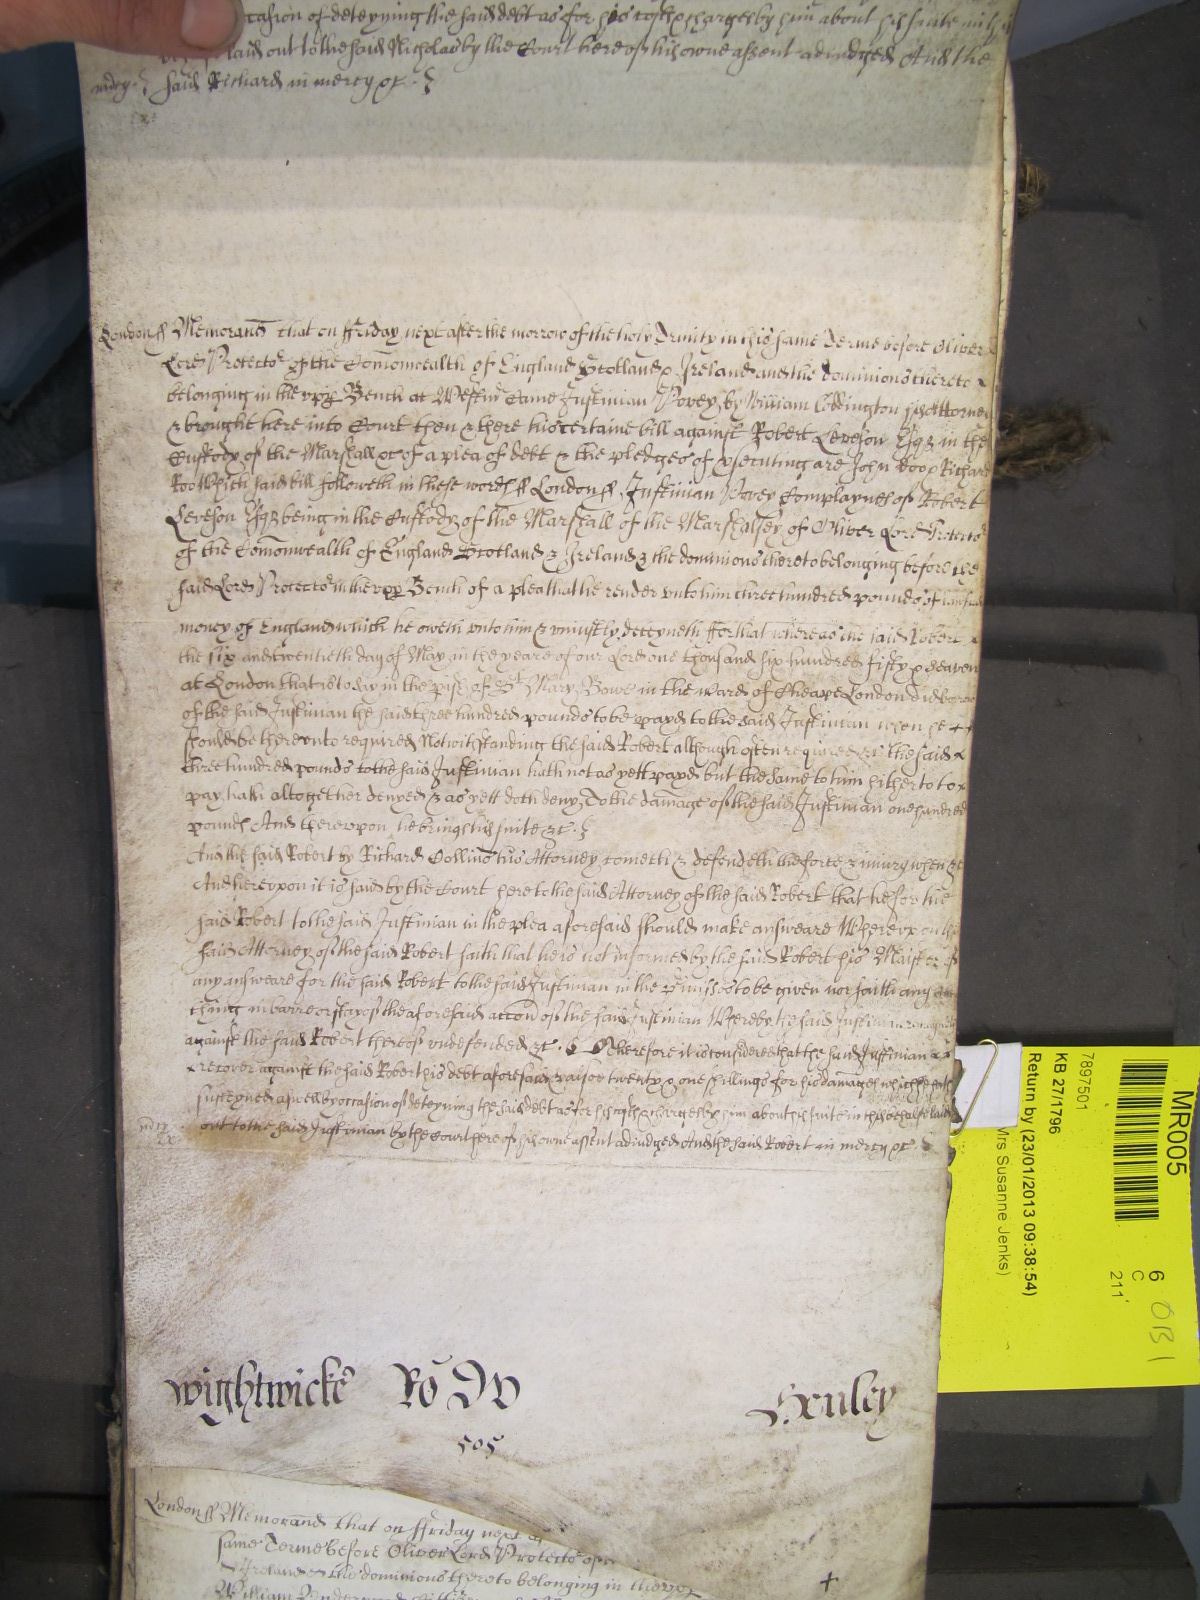 occasion of deteyning the said debt as for his costs & charges by him about his suite in this
laid out to the said Nicholas by the Court here of his owne assent adiudged And the
mercy. said Richard in mercy &c.
London ss Memorand that on ffriday next after the morrow of the holy Trinity in this same Terme before Oliver
Lord Protector of the Comonwealth of England Scotland & Ireland and the dominions thereto
belonging in the upp Bench at Westm Came Justinian Povey by William Coddington his Attorney
& brought here into Court then & there his certaine bill against Robert Leveson Esq in the
Custody of the Marshall &c of a plea of debt & the pledges of prsecuting are John Doo & Richard
Roo Which said bill followeth in these words ss London ss Justinian Povey Complayneth of Robert
Leveson Esq being in the Custody of the Marshall of the Marshalsey of Oliver Lord Protector
of the Comonwealth of England Scotland & Ireland & the dominions thereto belonging before the
said Lord Protector in the upp Bench of a plea that he render unto him three hundred pounds of lawfull
money of England which he oweth unto him & uniustly deteyneth ffor that whereas the said Robert
the six and twentieth day of May in the yeare of our Lord one thousand six hundred fifty & seaven
at London that is to say in the pish of St Mary Bowe in the ward of Cheape London did borrow
of the said Justinian the said three hundred pounds to be payd to the said Justinian when he
should be thereunto required Notwithstanding the said Robert although often required &c the said
three hundred pounds to the said Justinian hath not as yett payd but the same to him hitherto to
pay hath altogether denyed & as yett doth deny To the damage of the said Justinian one hundred
pounds And thereupon he brings his suite &c.
And the said Robert by Richard Collins his Attorney cometh & defendeth the force & iniury when &c
And hereupon it is said by the Court here to the said Attorney of the said Robert that he for the
said Robert to the said Justinian in the plea aforesaid should make answeare Whereupon the
said Attorney of the said Robert saith that he is not informed by the said Robert his Maister of
any answeare for the said Robert to the said Justinian in the pmisses to be given nor saith any
thing in barre or stay of the aforesaid accon of the said Justinian Whereby the said Justinian remayneth
against the said Robert thereof undefended &c. Therefore it is considered that the said Justinian
recover against the said Robert his debt aforesaid & alsoe twenty & one shillings for his damages which he hath
susteyned aswell by occasion of deteyning the said debt as for his costs & charges by him about his suite in this behalfe laid
mercy out to the said Justinian by the Court here of his owne assent adiudged And the said Robert in mercy &c.
Wightwicke Ro
Henley
505
London ss Memorand that on ffriday next
same Terme before Oliver Lord Protector of
Ireland & the dominions thereto belonging in the upp
William
MR005
6
C
211'
OB1
7897501
KB 27/1796
Return by (23/01/2013 09:38:54)
Mrs Susanne Jenks)